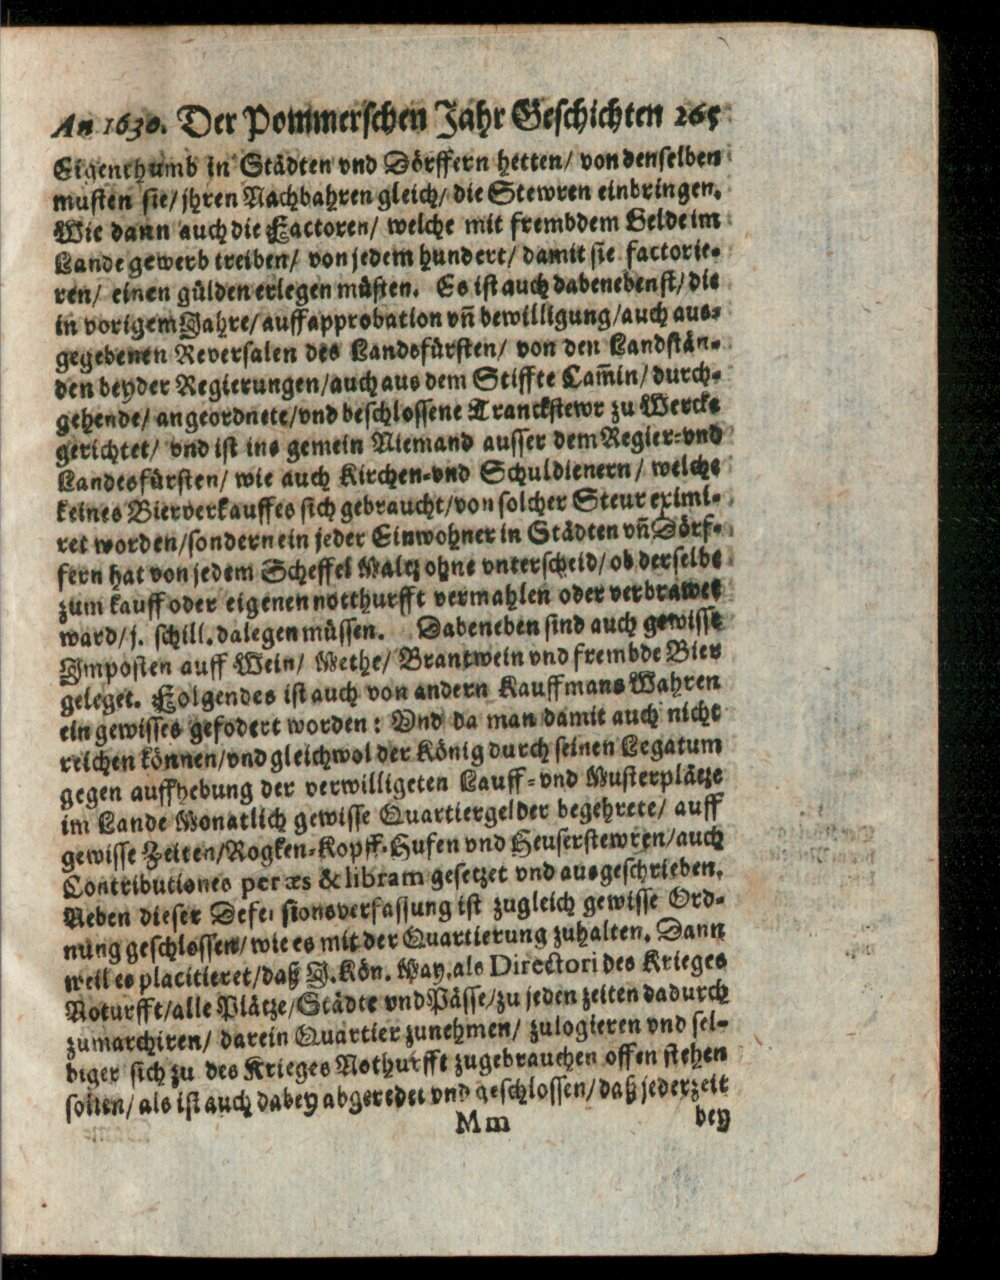 An 1630. Der Pommerschen Jahr Geschichten 265
Eigenthumb in Städten vnd Dörffern hetten/ von denselben
musten sie/ jhren Nachbahren gleich/ die Stewren einbringen.
Wie dann auch die Factoren/ welche mit frembdem Gelde im
Lande gewerb treiben/ von jedem hundert/ damit sie factorie-
ren/ einen gülden erlegen müsten. Es ist auch dabenebenst/ die
in vorigem Jahre/ auff approbation vñ bewilligung/ auch aus-
gegebenen Reversalen des Landsfürsten/ von den Landstän-
den beyder Regierungen/ auch aus dem Stiffte Cam̃in/ durch-
gehende/ angeordnete/ vnd beschlossene Tranckstewr zu Wercke
gerichtet/ vnd ist ins gemein Niemand ausser dem Regier-vnd
Landesfürsten/ wie auch Kirchen-vnd Schuldienern/ welche
keines Bierverkauffes sich gebraucht/ von solcher Steur eximi-
ret worden/ sondern ein jeder Einwohner in Städten vñ Dörf-
fern hat von jedem Scheffel Maltz ohne vnterscheid/ ob derselbe
zum kauff oder eigenen notthurfft vermahlen oder verbrawet
ward/ j. schill. dalegen müssen. Dabeneben sind auch gewisse
Imposten auff Wein/ Methe/ Brantwein vnd frembde Bier
geleget. Folgendes ist auch von andern Kauffmans Wahren
ein gewisses gefodert worden: Vnd da man damit auch nicht
reichen können/ vnd gleichwol der König durch seinen Legatum
gegen auffhebung der verwilligeten Lauff-vnd Musterplätze
im Lande Monatlich gewisse Quartiergelder begehrete/ auff
gewisse Zeiten/ Rogken-Kopff-Hufen vnd Heuserstewren/ auch
Contributiones per æs & libram gesetzet vnd ausgeschrieben.
Neben dieser Defensionsverfassung ist zugleich gewisse Ord-
nung geschlossen/ wie es mit der Quartierung zuhalten. Dann
weil es placitieret/ daß J. Kön. May. als Directori des Krieges
Noturfft/ alle Plätze/ Städte vnd Pässe/ zu jeden zeiten dadurch
zumarchiren/ darein Quartier zunehmen/ zulogieren vnd sel-
biger sich zu des Krieges Nothurfft zugebrauchen offen stehen
solten/ als ist auch dabey abgeredet vnd geschlossen/ daß jederzeit
Mm bey